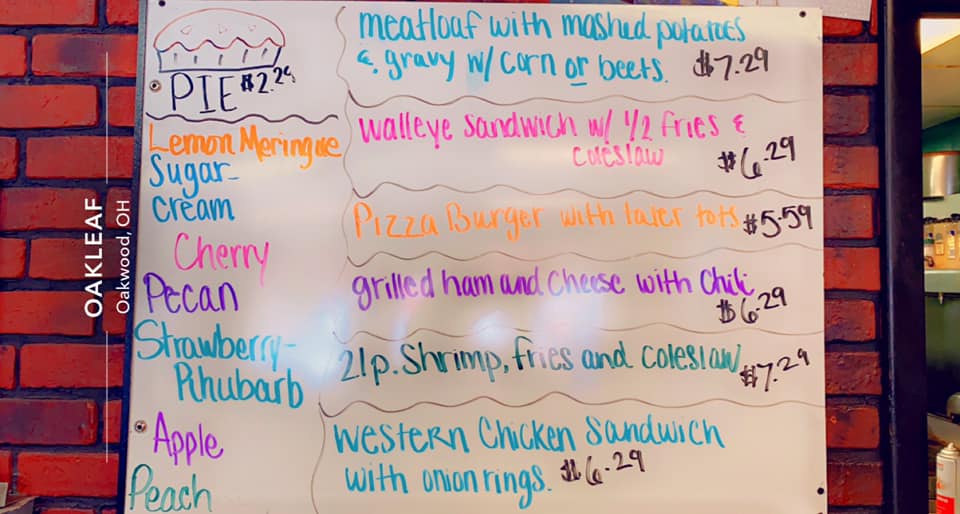 OAKLEAF
Oakwood, OH
PIE $2.29
Lemon Meringue
Sugar-
cream
Cherry
Pecan
Strawberry-
Rhubarb
Apple
Peach
meatloaf with mashed potatoes
&. gravy w/ corn or beets. $7.29
walleye sandwich w/ 1/2 fries &
coleslaw $6.29
Pizza Burger with tater tots $5.59
grilled ham and cheese with Chili
$6.29
21p. Shrimp, fries and coleslaw $7.29
western Chicken Sandwich
with onion rings. $6.29